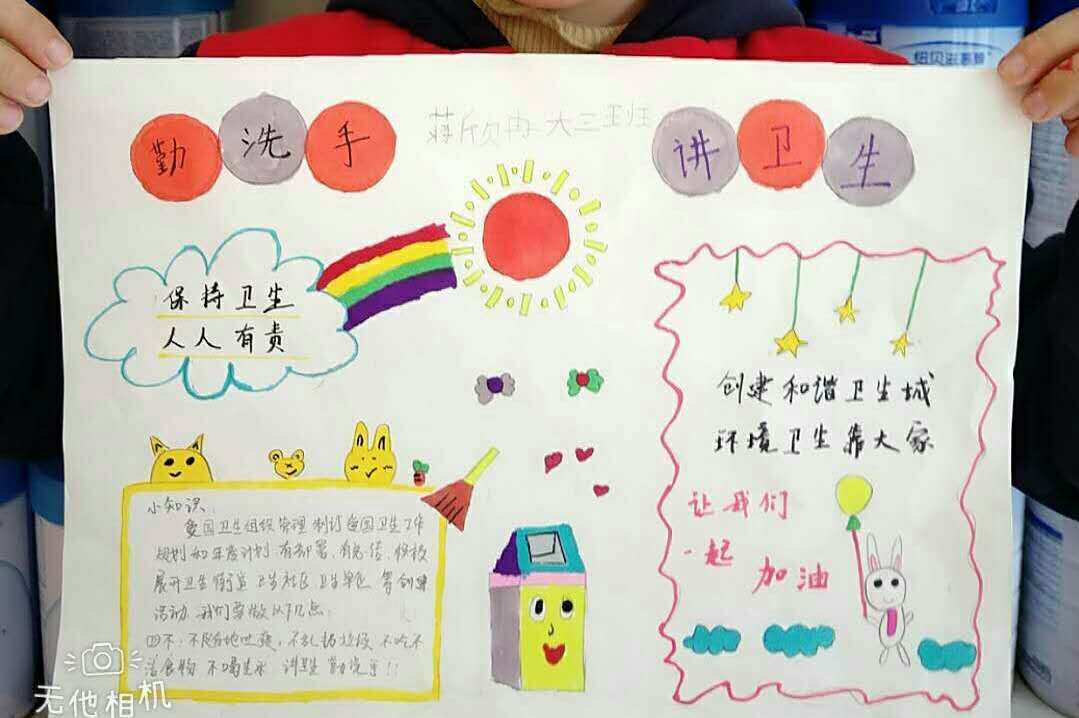 勤洗手
蒋欣冉 大三班
讲卫生
保持卫生
人人有责
创建和谐卫生城
环境卫生靠大家
让我们
一起
加油
小知识:
爱国卫生组织管理 制订爱国卫生工作
规划和年度计划 有部署、有总结、积极
展开卫生街道 卫生社区 卫生单位 等创建
活动 我们要做以下几点:
四不:不随地吐痰,不乱扔垃圾 不吃不
洁食物 不喝生水 讲卫生 勤洗手!!
无他相机